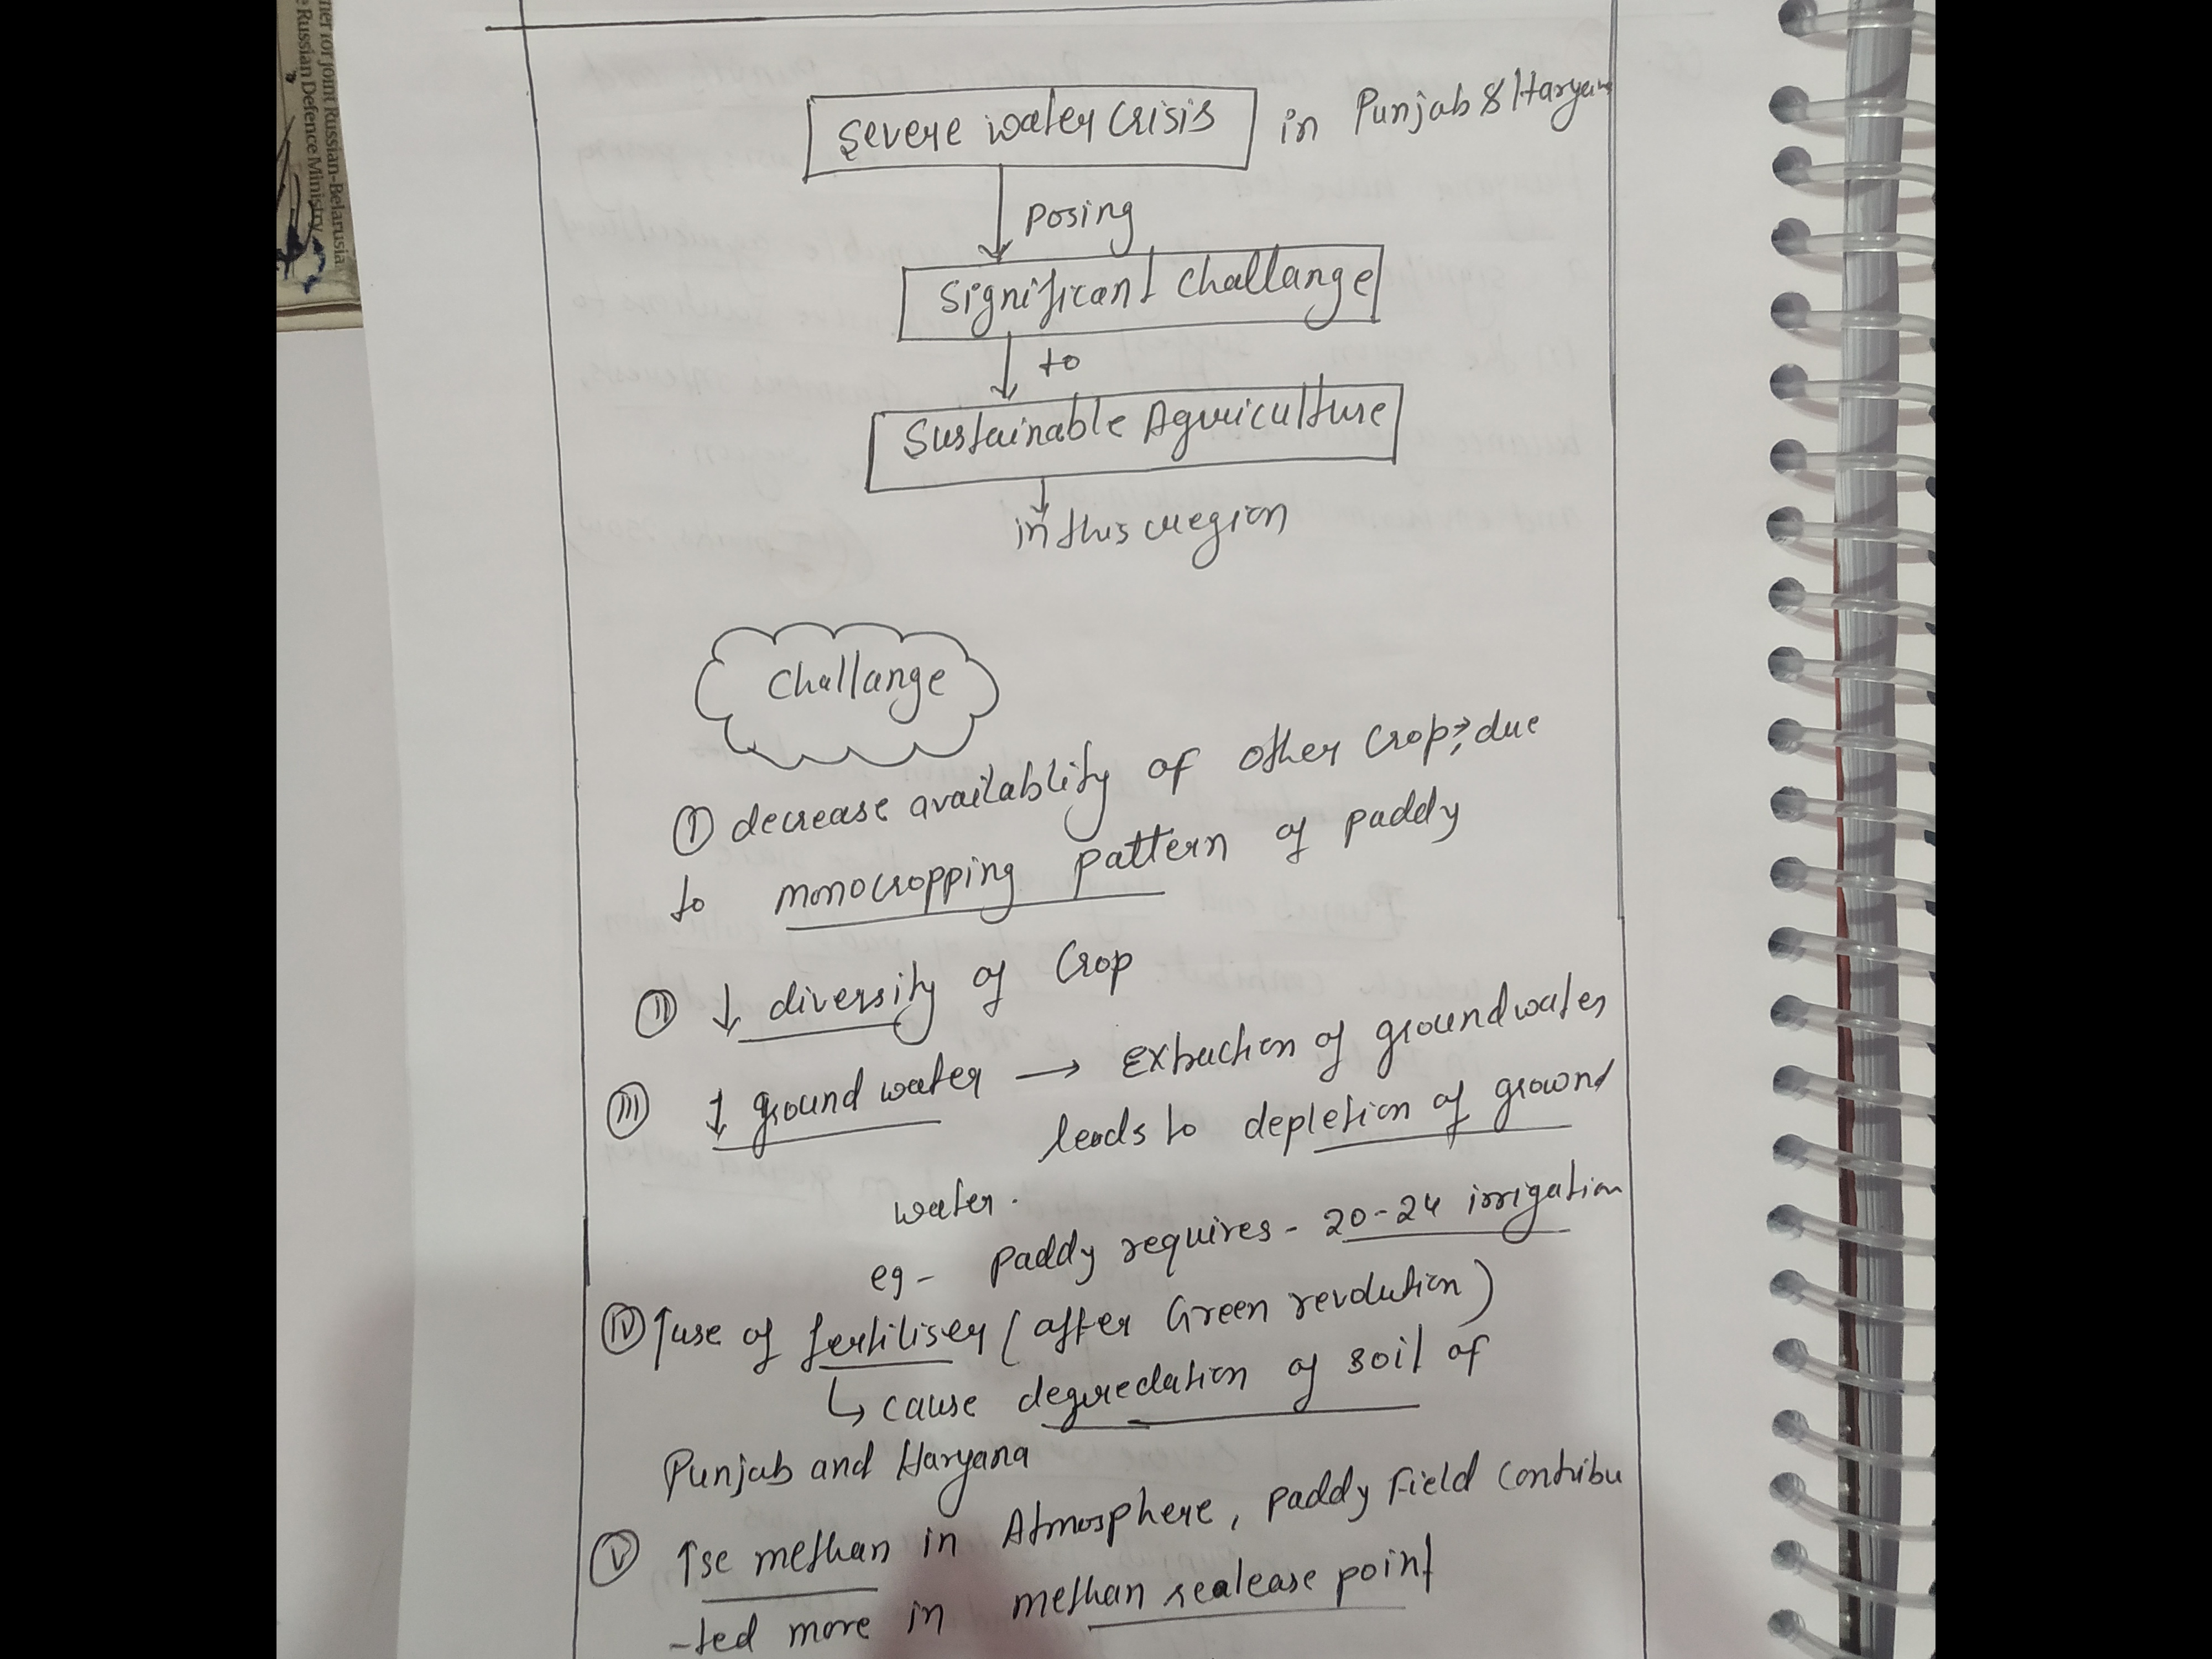 ner for joint Russian-Belarusia
e Russian Defence Ministry
Severe water crisis in Punjab & Haryan
posing
Significant challange
to
Sustainable Agriculture
in this region
Challange
(I) decrease availablity of other crop, due
to monocropping pattern of paddy
(II) ↓ diversity of crop
(III) ↓ ground water → Extraction of groundwater
leads to depletion of ground
water.
eg- paddy requires - 20-24 irrigation
(IV) ↑use of fertiliser (after Green revolution)
↳ cause degredation of soil of
Punjab and Haryana
(V) ↑se methan in Atmosphere, paddy Field contribu
-ted more in methan realease point